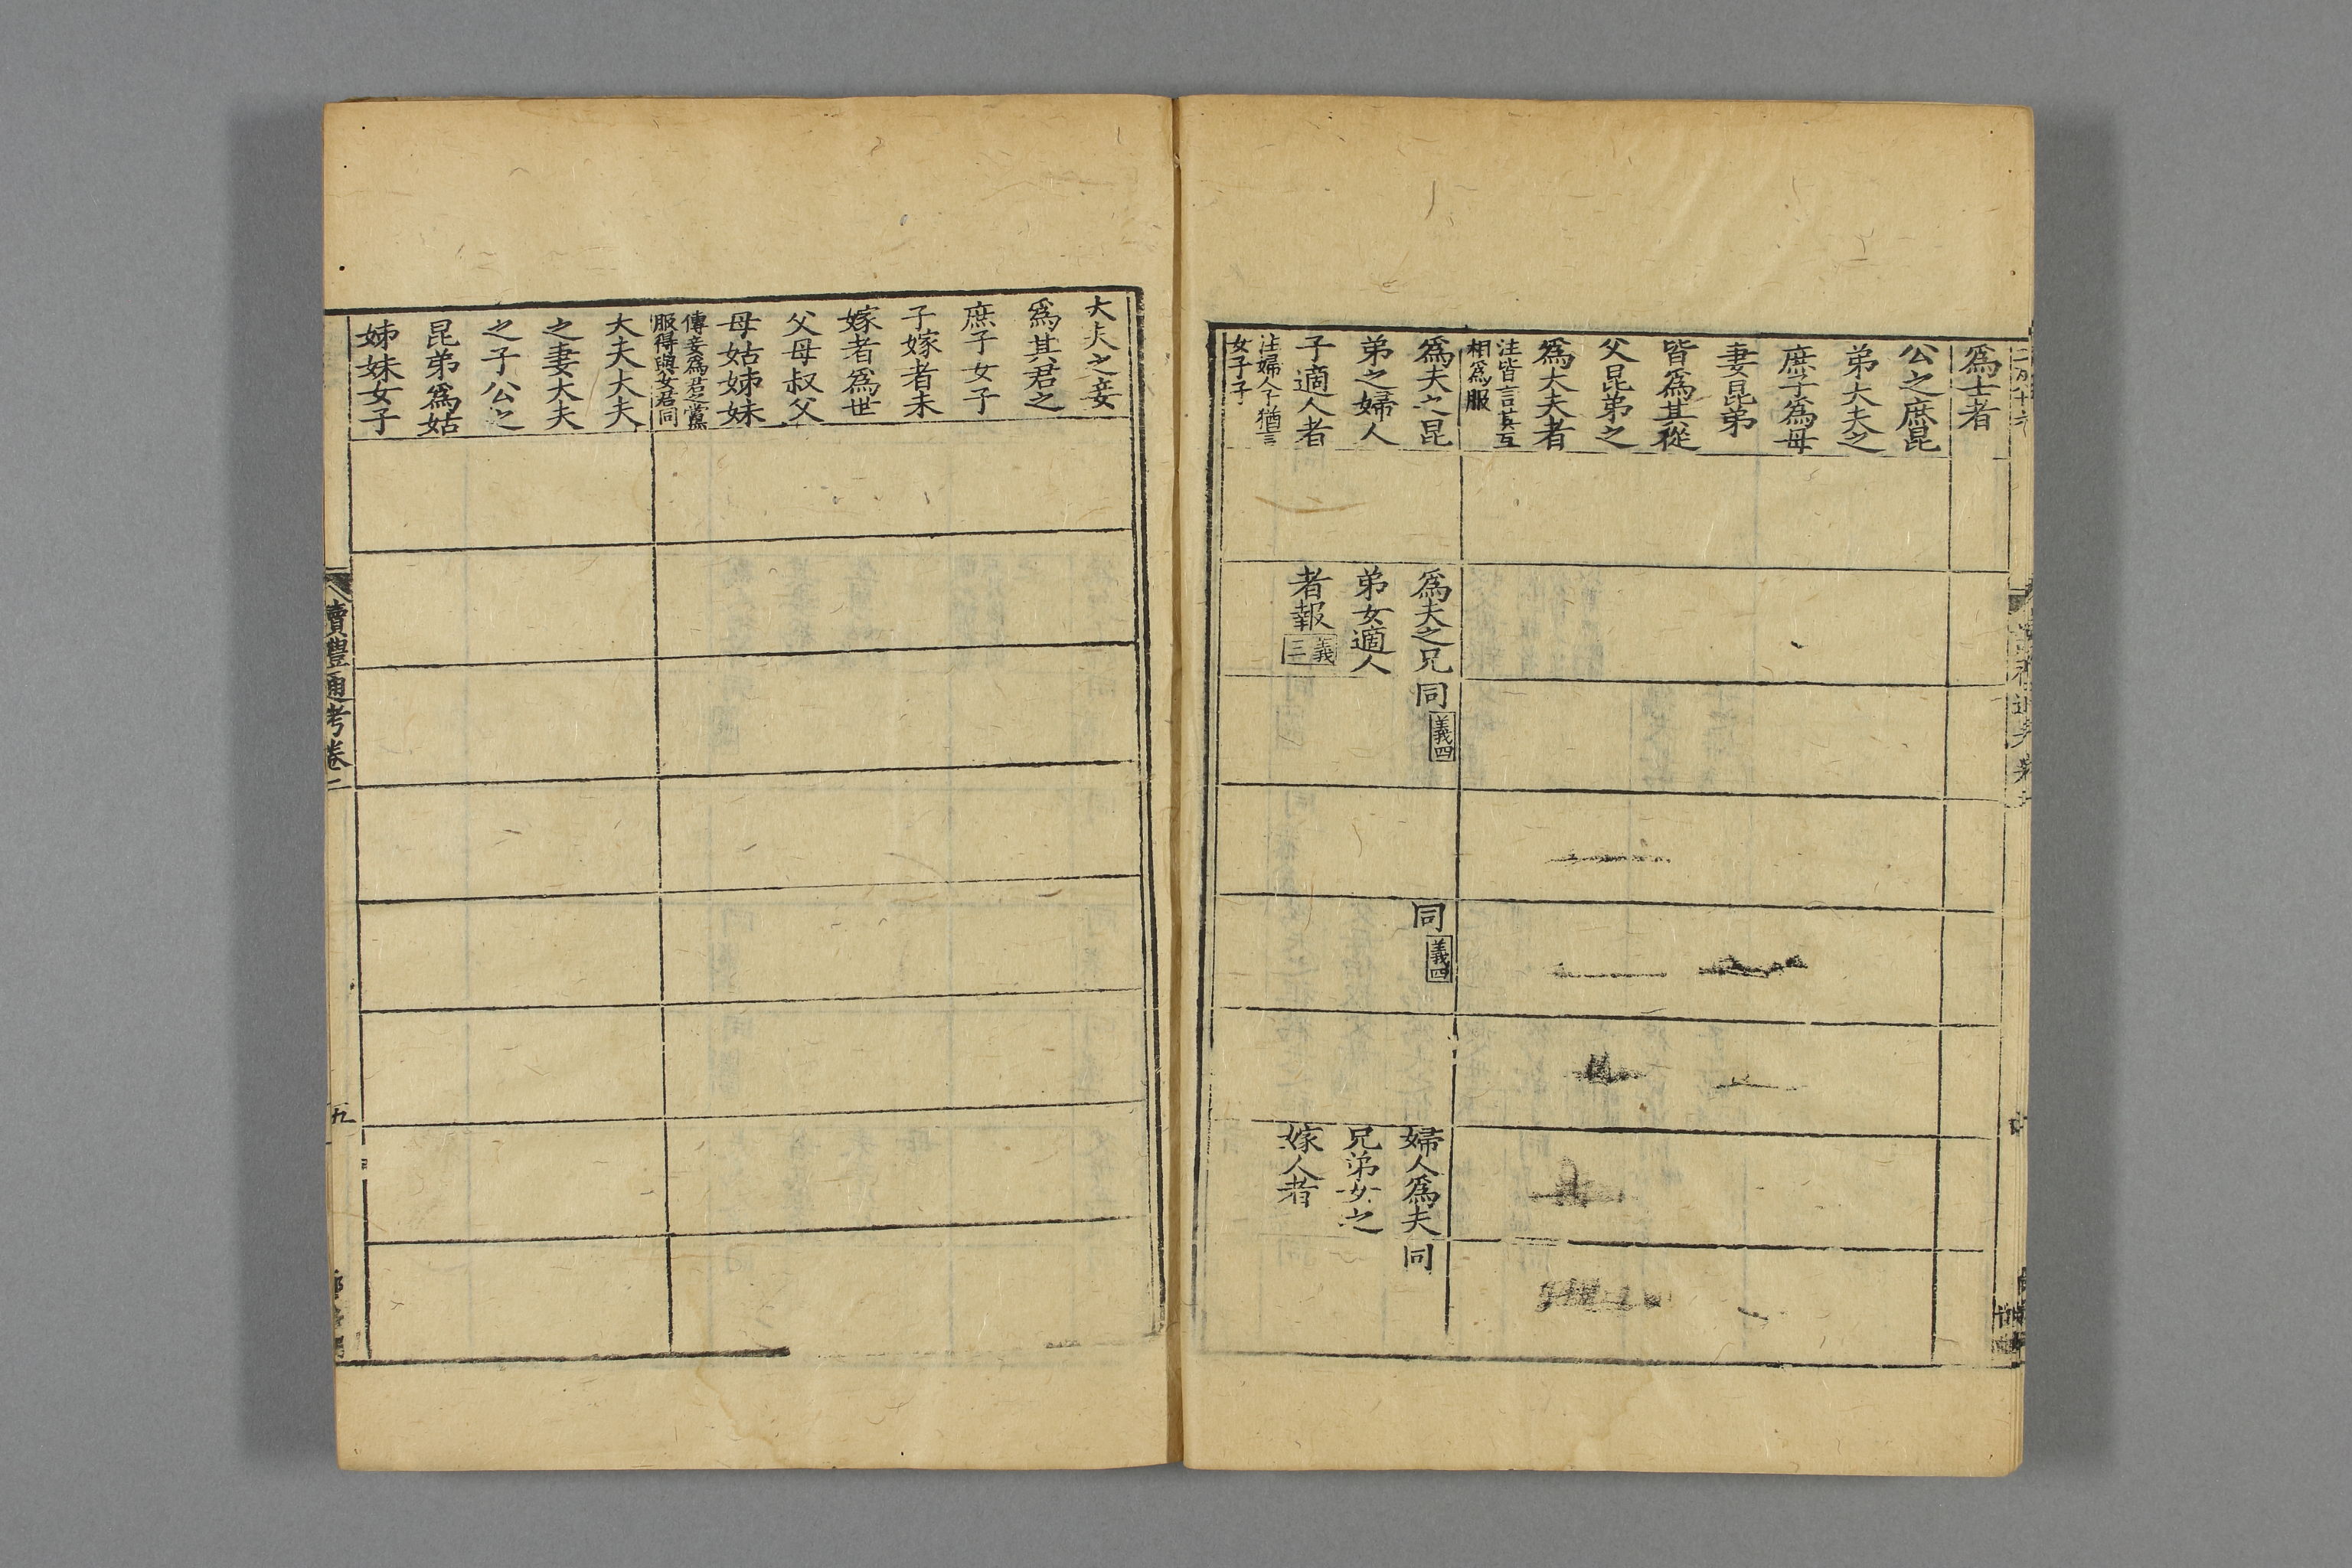 爲士者
公之庶昆
弟大夫之
庶子爲母
妻昆弟
皆爲其從
父昆弟之
爲大夫者
注皆言其互
相爲服
爲夫之昆
弟之婦人
子適人者
注婦人子猶言
女子子
爲夫之兄
弟女適人
者報
義
三
同
義四
同
義四
婦人爲夫
兄弟女之
嫁人者
同
大夫之妾
爲其君之
庶子女子
子嫁者未
嫁者爲世
父母叔父
母姑姊妹
傳妾爲君之黨
服得與女君同
大夫大夫
之妻大夫
之子公之
昆弟爲姑
姊妹女子
讀禮通考卷二
九